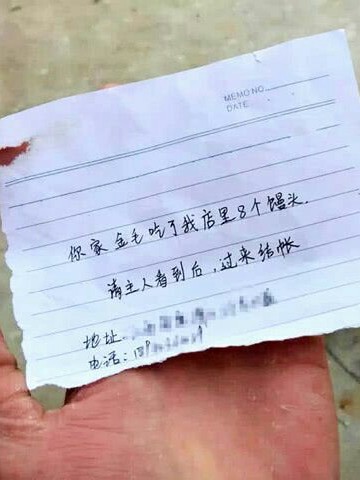 MEMO NO.
DATE
你家金毛吃了我店里8个馒头.
请主人看到后,过来结帐
地址
电话:139